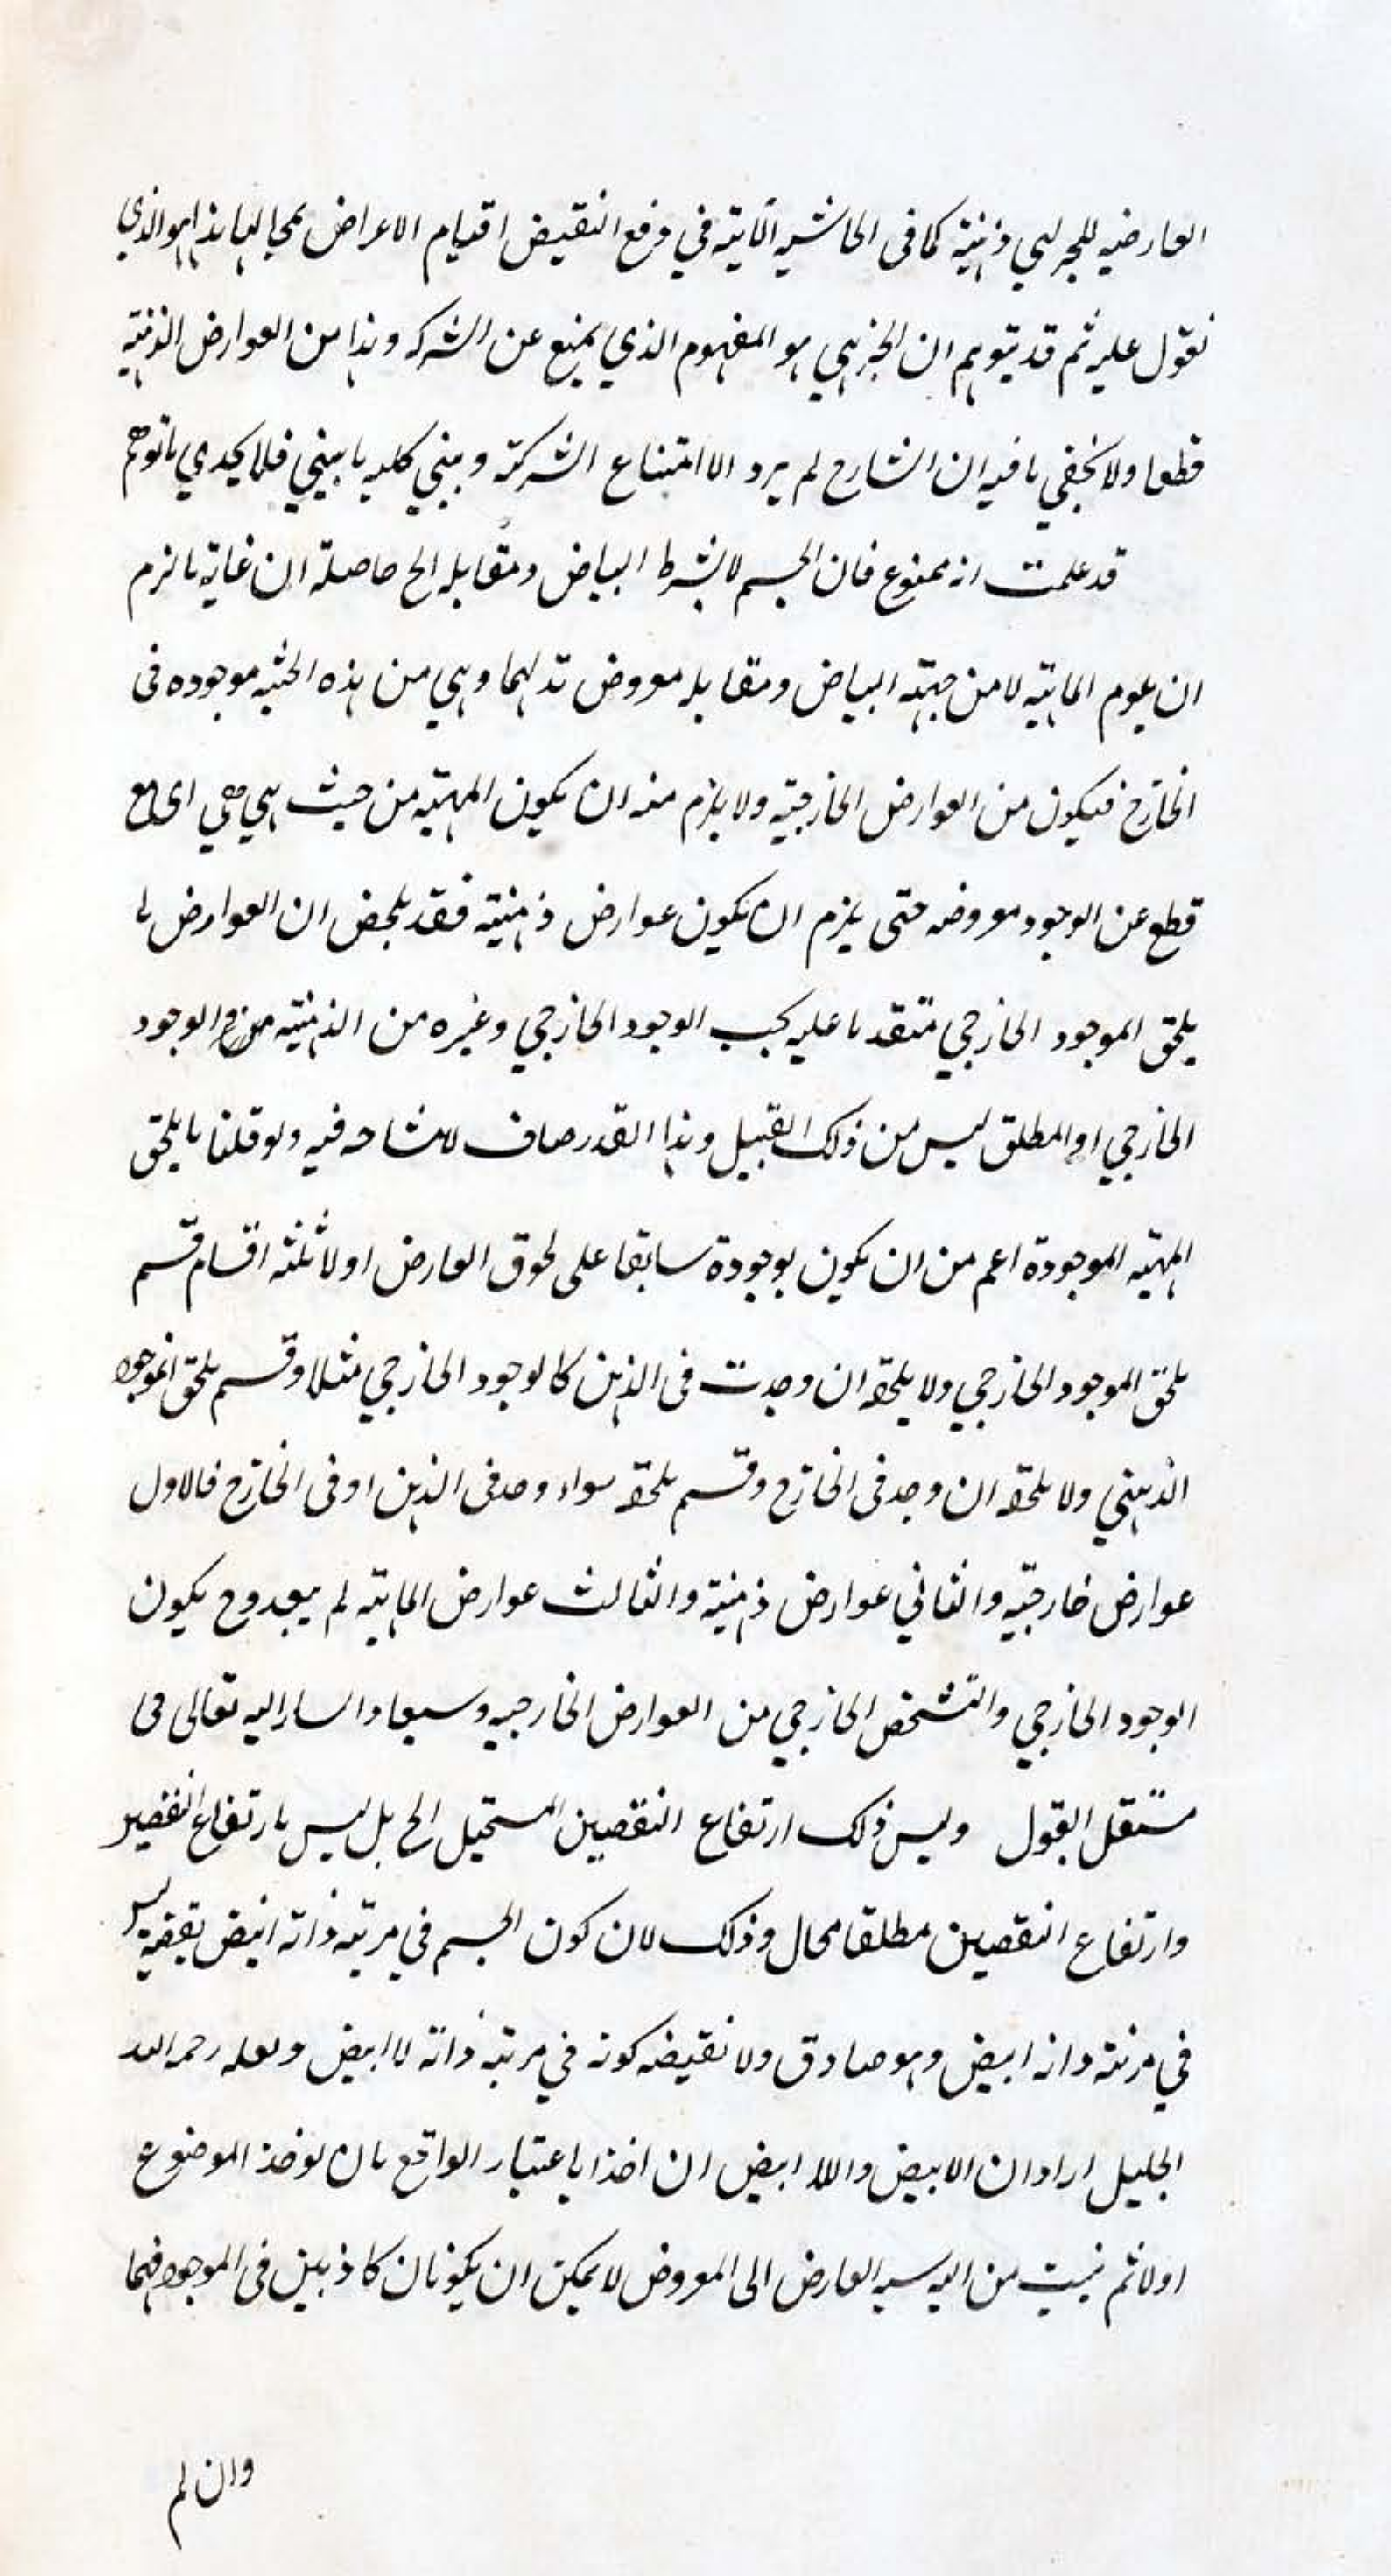 العارضيه للجزئي ذهنية كما في الحاشيه الآتية في فرفع النقيض اقتيام الاعراض بمحالها هذا هو الذي
نقول عليه ثم قد يتوهم ان الجزئي هو المفهوم الذي يمنع عن الشركه وهذا من العوارض الذهنية
قطعا ولا يخفى ما فيه ان الشارح لم يرد الا امتناع الشركة وبيني كليه ما بيني فلا يجدي ما توهم
قد علمت انه ممنوع فان الجسم لا بشرط البياض ومقابله الخ حاصلة ان غاية ما لزم
ان الماهية لا من جهة البياض ومقابله معروض لهما وهي من هذه الحيثيه موجوده فى
الخارج فيكون من العوارض الخارجية ولا يلزم منه ان يكون المهية من حيث هي هي اى مع
قطع عن الوجود معروضه حتى يلزم ان يكون عوارض ذهنية فقد تلخص ان العوارض ما
يلحق الموجود الخارجي متقدما عليه بحسب الوجود الخارجي وغيره من الذهنية الوجود
الخارجي او المطلق ليس من ذلك القبيل وهذا القدر صاف لا مشاحه فيه ولو قلنا ما يلحق
المهية الموجودة اعم من ان يكون موجودة سابقا على لحوق العارض او لا ثلثه اقسام قسم
يلحق الموجود الخارجي ولا يلحقه ان وجدت فى الذهن كالوجود الخارجي مثلا وقسم يلحق الموجود
الذهني ولا يلحقه ان وجد فى الخارج وقسم يلحقه سواء وجد فى الذهن او فى الخارج فالاول
عوارض خارجية والثاني عوارض ذهنية والثالث عوارض الماهية لم يبعد وح يكون
الوجود الخارجي والتشخص الخارجي من العوارض الخارجيه وسيعاد اليه تعالى فى
مستقل القول وليس ذلك ارتفاع النقيضين المستحيل الخ بل ليس بارتفاع النقيضين
وارتفاع النقيضين مطلقا محال وذلك لان كون الجسم في مرتبه ذاته ابيض نقيضه ليس
في مرتبة ذاته ابيض وهو صادق ولا نقيضه كونه في مرتبه ذاته لا ابيض ولعله رحمه الله
الجليل اراد ان الابيض واللا ابيض ان اخذا باعتبار الواقع بان يوخذ الموضوع
اولا ثم ينسب من اليه العارض الى المعروض لا يمكن ان يكونان كاذبين فى الموجود فهما
وان لم